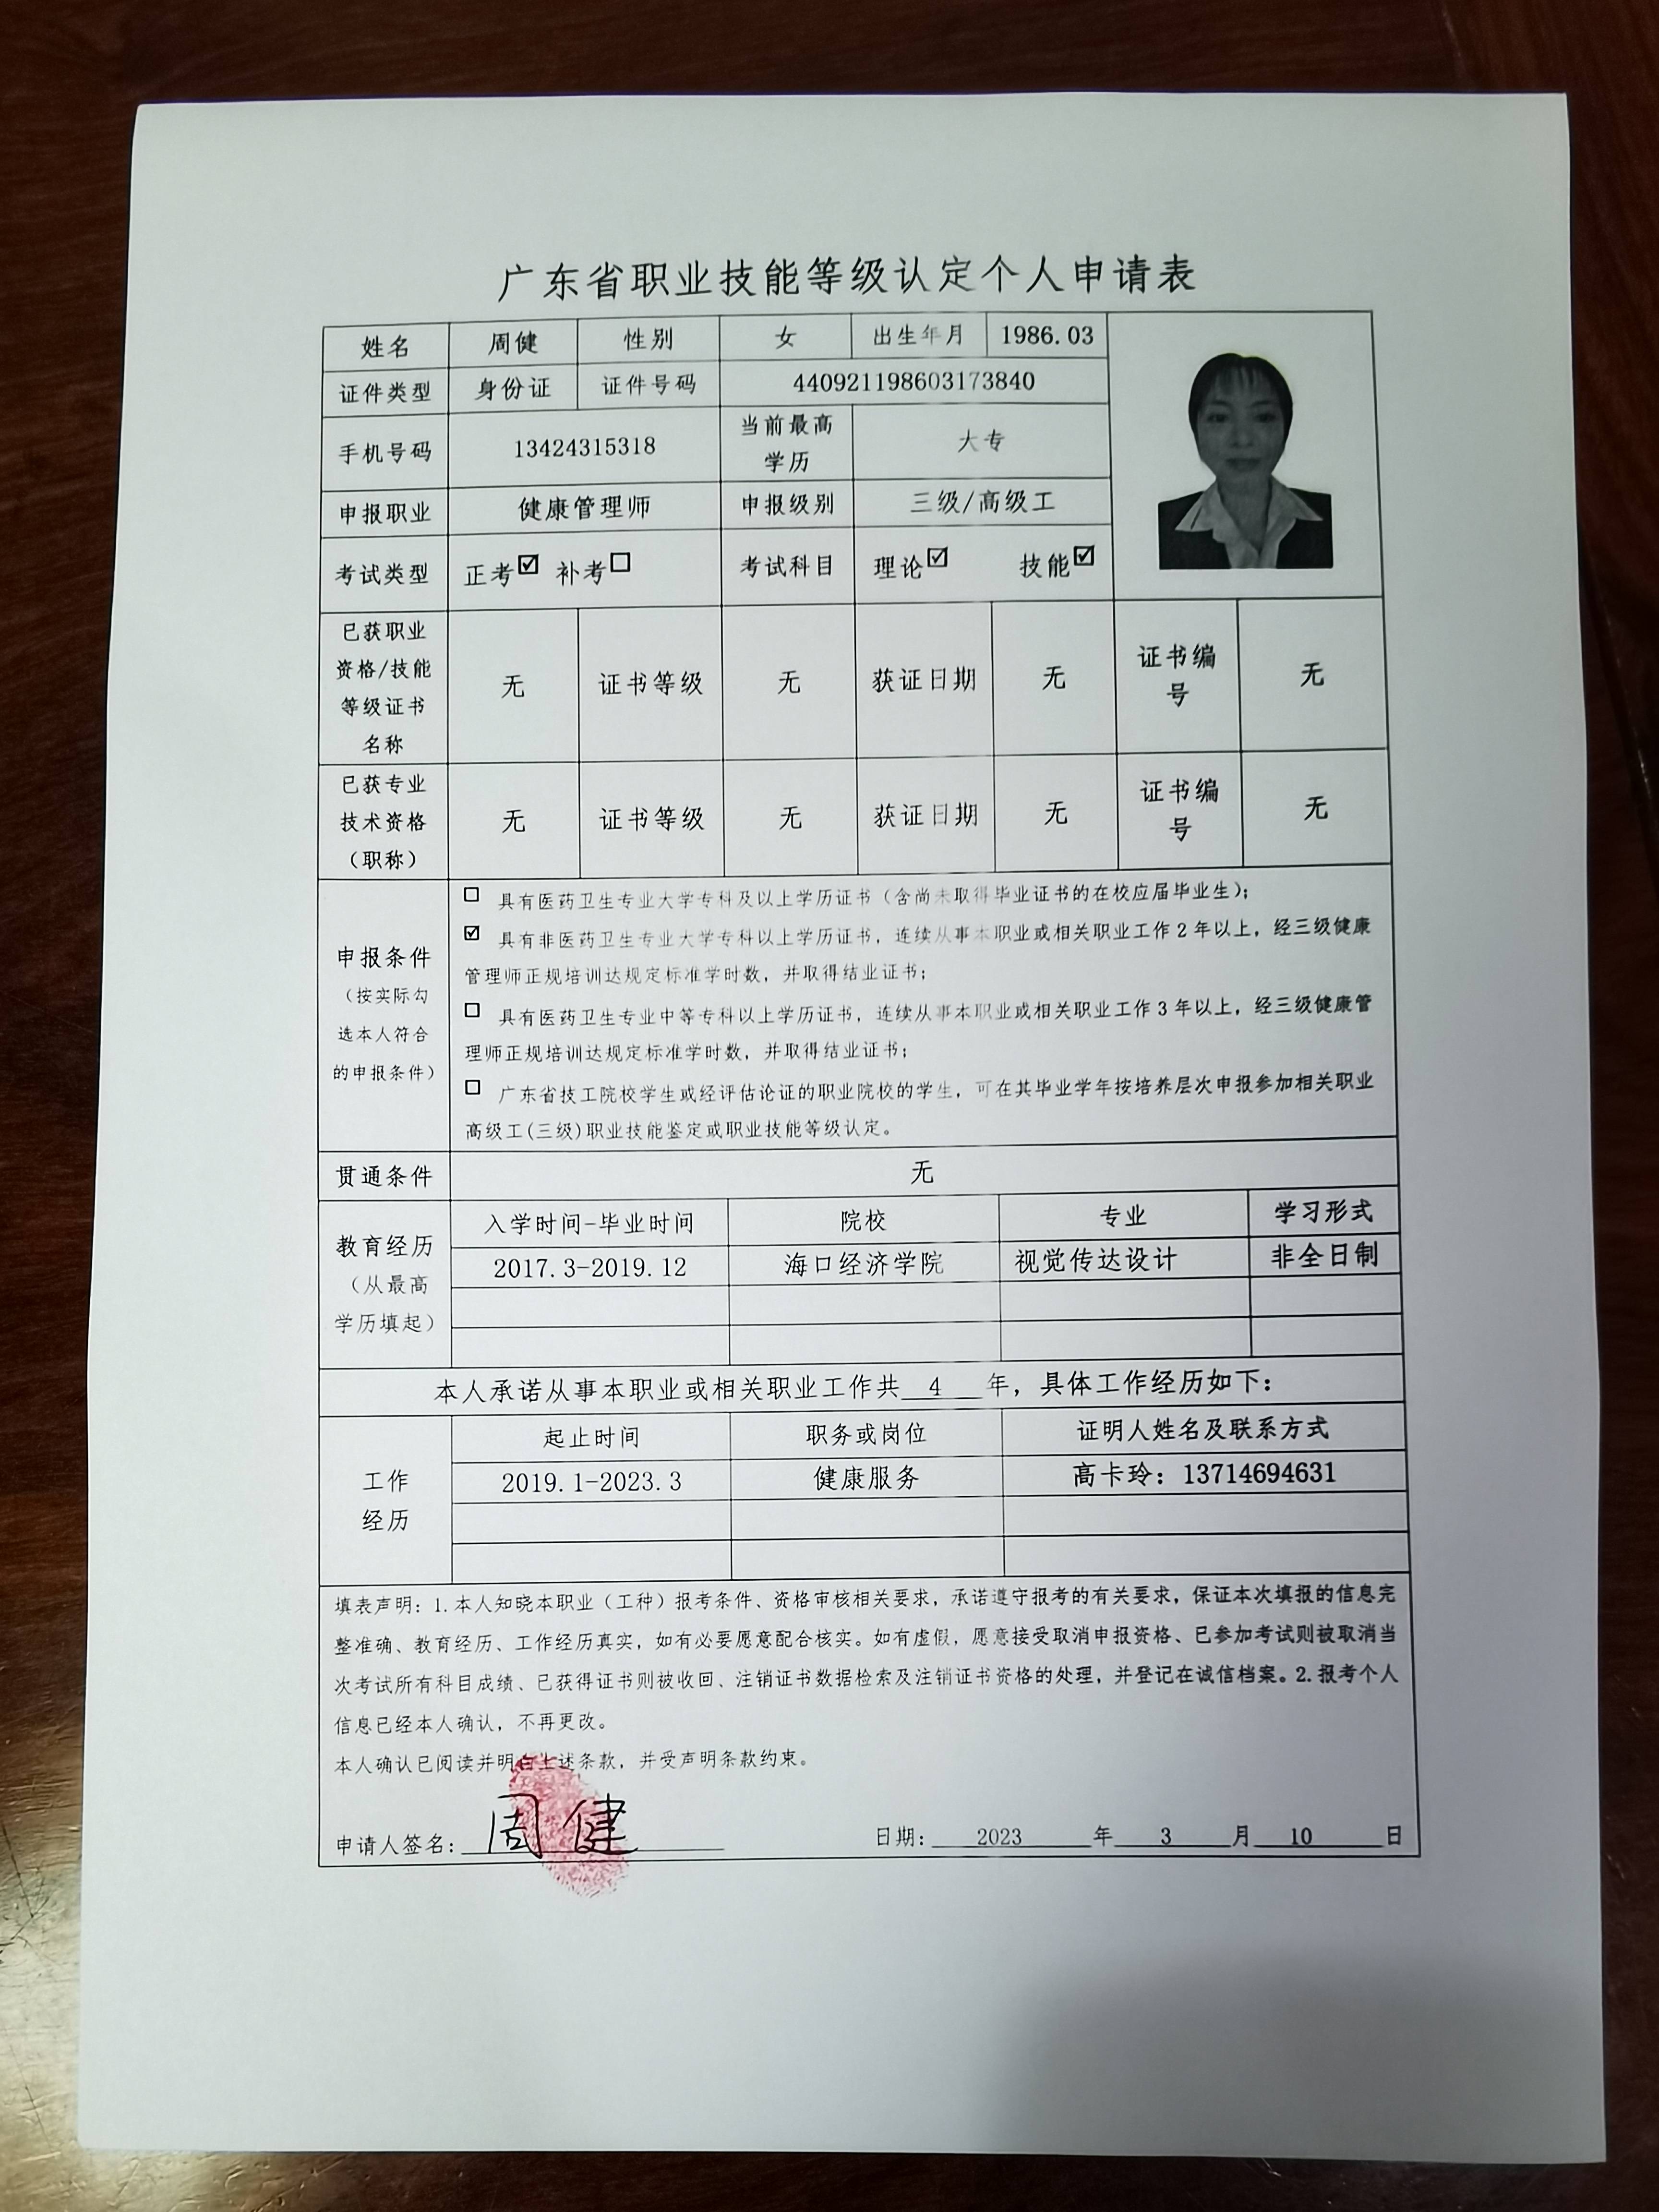 广东省职业技能等级认定个人申请表
姓名 周健 性别 女 出生年月 1986.03
证件类型 身份证 证件号码 440921198603173840
手机号码 13424315318 当前最高学历 大专
申报职业 健康管理师 申报级别 三级/高级工
考试类型 正考☑ 补考☐ 考试科目 理论☑ 技能☑
已获职业资格/技能等级证书名称 无 证书等级 无 获证日期 无 证书编号 无
已获专业技术资格（职称） 无 证书等级 无 获证日期 无 证书编号 无
申报条件
（按实际勾
选本人符合
的申报条件）
☐ 具有医药卫生专业大学专科及以上学历证书（含尚未取得毕业证书的在校应届毕业生）；
☑ 具有非医药卫生专业大学专科以上学历证书，连续从事本职业或相关职业工作2年以上，经三级健康
管理师正规培训达规定标准学时数，并取得结业证书；
☐ 具有医药卫生专业中等专科以上学历证书，连续从事本职业或相关职业工作3年以上，经三级健康管
理师正规培训达规定标准学时数，并取得结业证书；
☐ 广东省技工院校学生或经评估论证的职业院校的学生，可在其毕业学年按培养层次申报参加相关职业
高级工(三级)职业技能鉴定或职业技能等级认定。
贯通条件 无
教育经历
（从最高
学历填起）
入学时间-毕业时间 院校 专业 学习形式
2017.3-2019.12 海口经济学院 视觉传达设计 非全日制
本人承诺从事本职业或相关职业工作共 4 年，具体工作经历如下：
工作
经历
起止时间 职务或岗位 证明人姓名及联系方式
2019.1-2023.3 健康服务 高卡玲：13714694631
填表声明：1.本人知晓本职业（工种）报考条件、资格审核相关要求，承诺遵守报考的有关要求，保证本次填报的信息完
整准确、教育经历、工作经历真实，如有必要愿意配合核实。如有虚假，愿意接受取消申报资格、已参加考试则被取消当
次考试所有科目成绩、已获得证书则被收回、注销证书数据检索及注销证书资格的处理，并登记在诚信档案。2.报考个人
信息已经本人确认，不再更改。
本人确认已阅读并明白上述条款，并受声明条款约束。
申请人签名：周健 日期：2023 年 3 月 10 日